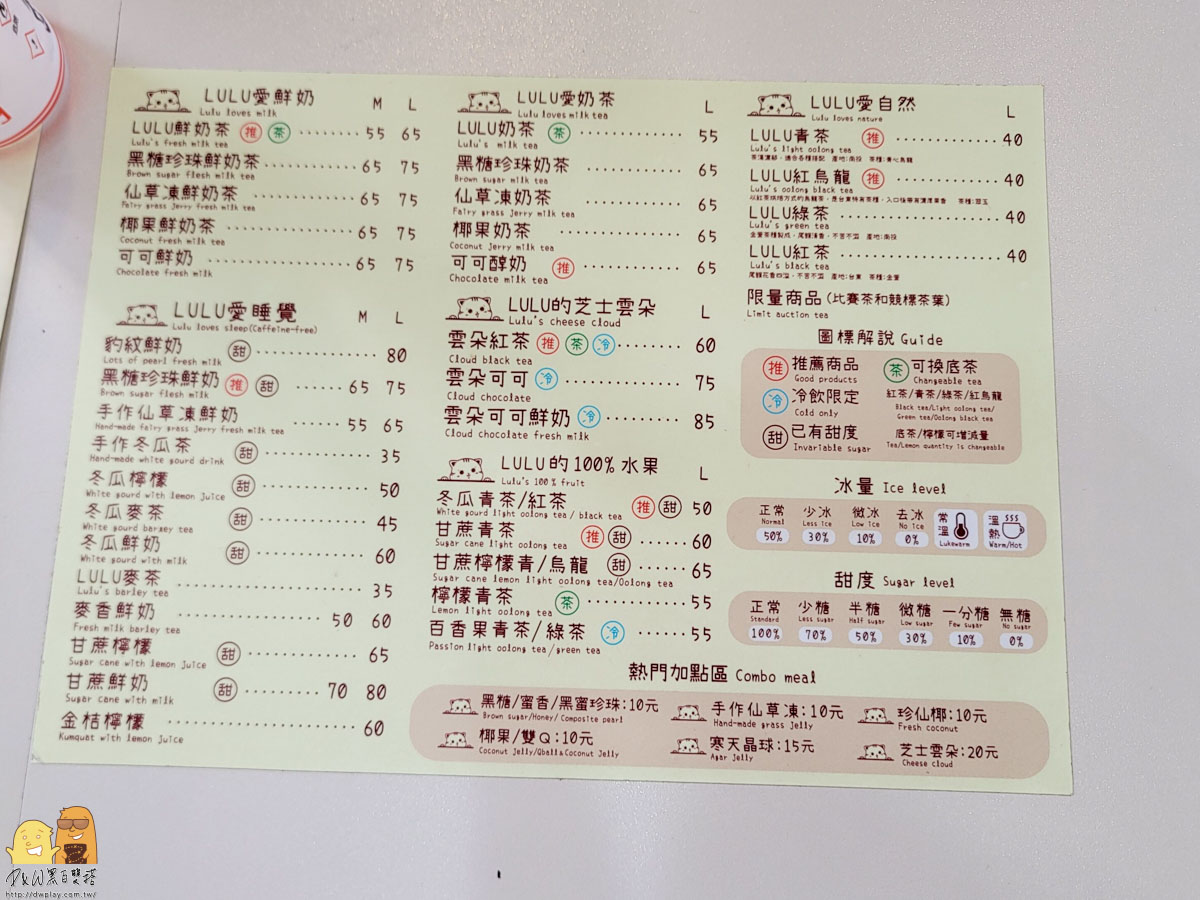 LULU愛鮮奶 M L
Lulu loves milk
LULU鮮奶茶 推 茶 ········ 55 65
Lulu's fresh milk tea
黑糖珍珠鮮奶茶 ········ 65 75
Brown sugar flesh milk tea
仙草凍鮮奶茶 ········ 65 75
Fairy grass Jerry fresh milk tea
椰果鮮奶茶 ········ 65 75
Coconut fresh milk tea
可可鮮奶 ········ 65 75
Chocolate fresh milk
LULU愛睡覺 M L
Lulu loves sleep(Caffeine-free)
豹紋鮮奶 甜 ········ 80
Lots of pearl fresh milk
黑糖珍珠鮮奶 推 甜 ······ 65 75
Brown sugar flesh milk
手作仙草凍鮮奶 ········ 55 65
Hand-made fairy grass Jerry fresh milk tea
手作冬瓜茶 甜 ········ 35
Hand-made white gourd drink
冬瓜檸檬 甜 ········ 50
White gourd with lemon juice
冬瓜麥茶 甜 ········ 45
White gourd bargey tea
冬瓜鮮奶 甜 ········ 60
White gourd with milk
LULU麥茶 ········ 35
Lulu's barley tea
麥香鮮奶 ········ 50 60
Fresh milk barley tea
甘蔗檸檬 甜 ········ 65
Sugar cane with lemon juice
甘蔗鮮奶 甜 ········ 70 80
Sugar cane with milk
金桔檸檬 ········ 60
Kumquat with lemon juice
LULU愛奶茶 L
Lulu loves milk tea
LULU奶茶 推 茶 ········ 55
Lulu's milk tea
黑糖珍珠奶茶 ········ 65
Brown sugar milk tea
仙草凍奶茶 ········ 65
Fairy grass Jerry milk tea
椰果奶茶 ········ 65
Coconut Jerry milk tea
可可醇奶 推 ········ 65
Chocolate milk tea
LULU的芝士雲朵 L
Lulu's cheese cloud
雲朵紅茶 推 茶 冷 ········ 60
Cloud black tea
雲朵可可 冷 ········ 75
Cloud chocolate
雲朵可可鮮奶 冷 ········ 85
Cloud chocolate fresh milk
LULU的100%水果 L
Lulu's 100% fruit
冬瓜青茶/紅茶 推 甜 50
White gourd light oolong tea / black tea
甘蔗青茶 推 甜 ······ 60
Sugar cane light oolong tea
甘蔗檸檬青/烏龍 甜 ······ 65
Sugar cane lemon light oolong tea/Oolong tea
檸檬青茶 茶 ········ 55
Lemon light oolong tea
百香果青茶/綠茶 冷 ······ 55
Passion light oolong tea/green tea
LULU愛自然 L
Lulu loves nature
LULU青茶 推 ········ 40
Lulu's light oolong tea
LULU紅烏龍 推 ········ 40
Lulu's oolong black tea
LULU綠茶 ········ 40
Lulu's green tea
LULU紅茶 ········ 40
Lulu's black tea
限量商品(比賽茶和競標茶葉)
Limit auction tea
圖標解說 Guide
推 推薦商品 茶 可換底茶
Good products Changeable tea
冷 冷飲限定 紅茶/青茶/綠茶/紅烏龍
Cold only Black tea/Light oolong tea/
Green tea/Oolong black tea
甜 已有甜度 底茶/檸檬可增減量
Invariable sugar Tea/Lemon quantity is changeable
冰量 Ice level
正常 少冰 微冰 去冰 常溫 溫熱
Normal Less ice Low ice No ice
50% 30% 10% 0% Lukewarm Warm/Hot
甜度 Sugar level
正常 少糖 半糖 微糖 一分糖 無糖
Standard Less sugar Half sugar Low sugar Few sugar No sugar
100% 70% 50% 30% 10% 0%
熱門加點區 Combo meal
黑糖/蜜香/黑蜜珍珠:10元 手作仙草凍:10元 珍仙椰:10元
Brown sugar/Honey/ Composite pearl Hand-made grass Jelly Fresh coconut
椰果/雙Q:10元 寒天晶球:15元 芝士雲朵:20元
Coconut Jelly/Qball&Coconut Jelly Agar Jelly Cheese cloud
D&W黑白雙搭
http://dwplay.com.tw/